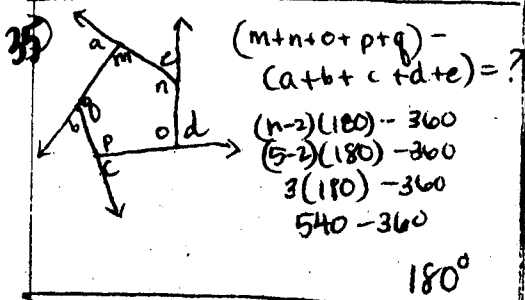 35)
a
m
e
n
q
b
p
o
d
c
(m+n+o+p+q) -
(a+b+c+d+e)=?
(n-2)(180) - 360
(5-2)(180) -360
3(180) -360
540 -360
180°